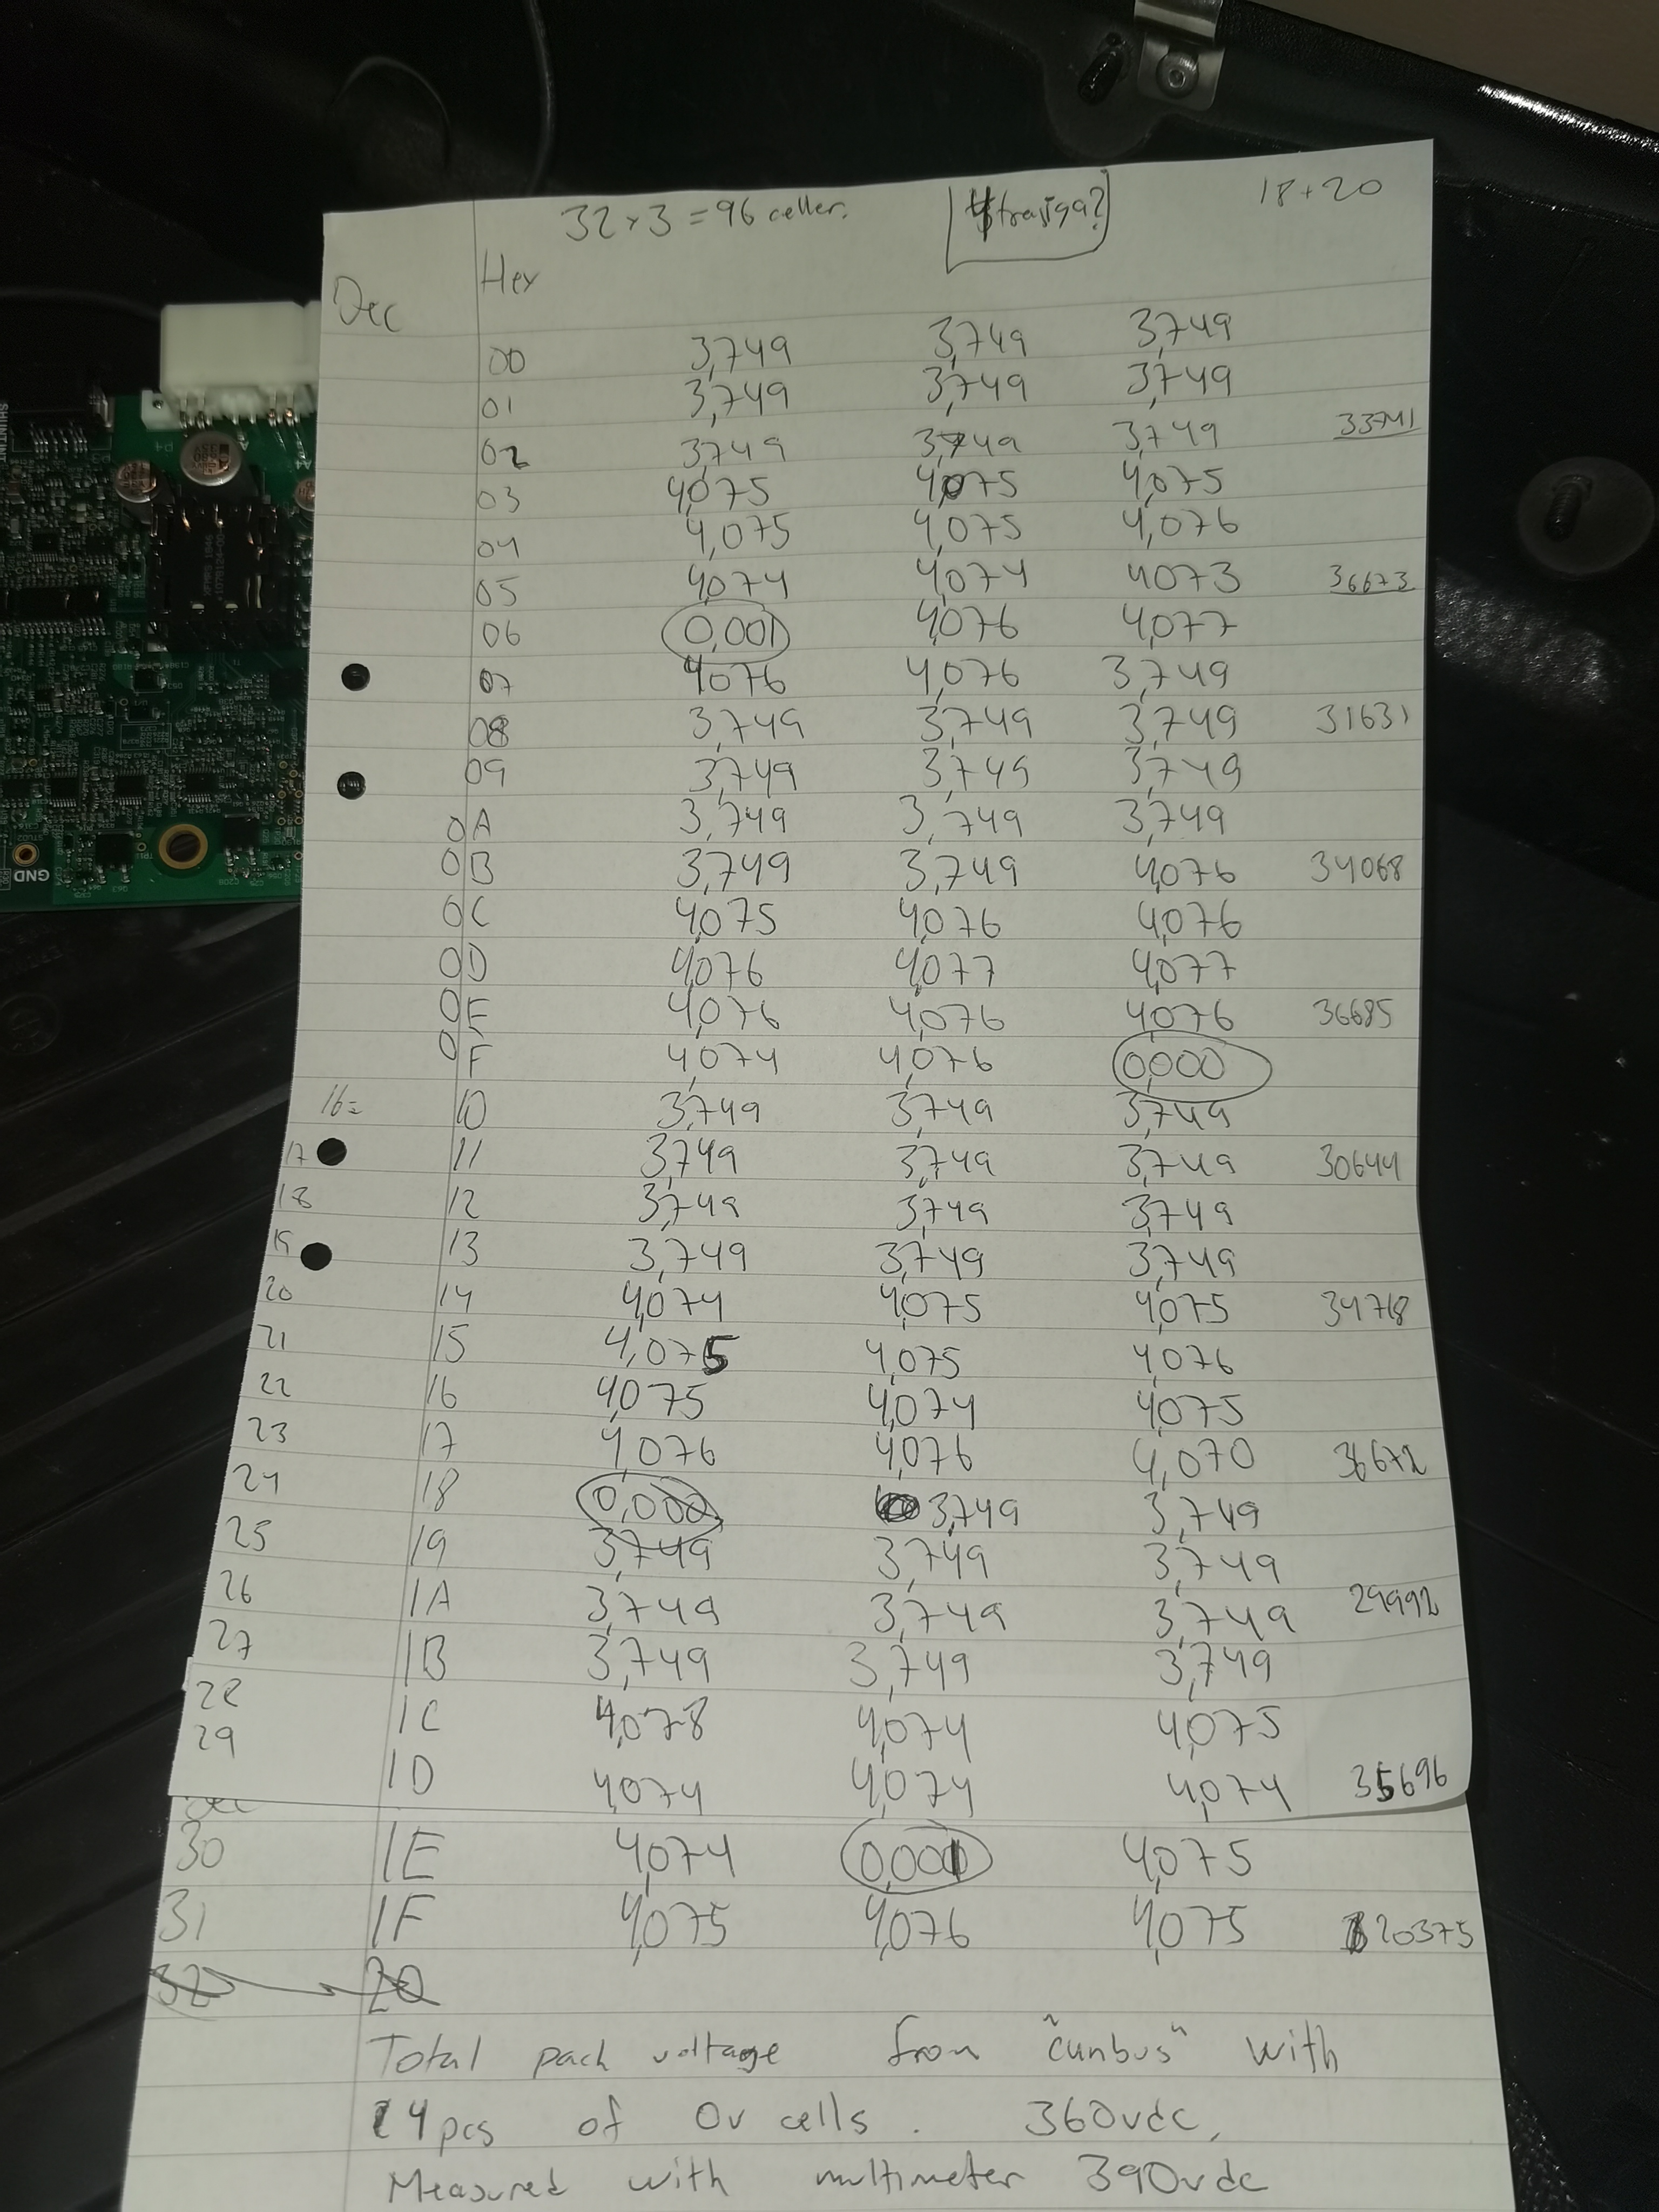 32x3=96 celler. trasiga? 18+20
Dec Hex
00 3,749 3,749 3,749
01 3,749 3,749 3,749
02 3,749 3,749 3,749 33741
03 4,075 4,075 4,075
04 4,075 4,075 4,076
05 4,074 4,074 4073 36673
06 0,001 4,076 4,077
07 4076 4,076 3,749
08 3,749 3,749 3,749 31631
09 3,749 3,749 3,749
0A 3,749 3,749 3,749
0B 3,749 3,749 4,076 34068
0C 4,075 4,076 4,076
0D 4,076 4,077 4,077
0E 4,076 4,076 4,076 36685
0F 4,074 4,076 0,000
16= 10 3,749 3,749 3,749
17 11 3,749 3,749 3,749 30644
18 12 3,749 3,749 3,749
19 13 3,749 3,749 3,749
20 14 4,074 4,075 4,075 34718
21 15 4,075 4,075 4,076
22 16 4,075 4,074 4,075
23 17 4,076 4,076 4,070 36672
24 18 0,000 3,749 3,749
25 19 3,749 3,749 3,749
26 1A 3,749 3,749 3,749 29992
27 1B 3,749 3,749 3,749
28 1C 4,078 4,074 4,075
29 1D 4,074 4,074 4,074 35696
30 1E 4,074 0,001 4,075
31 1F 4,075 4,076 4,075 20375
32 20
Total pack voltage from "canbus" with
4pcs of 0v cells. 360vdc,
Measured with multimeter 390vdc
GND